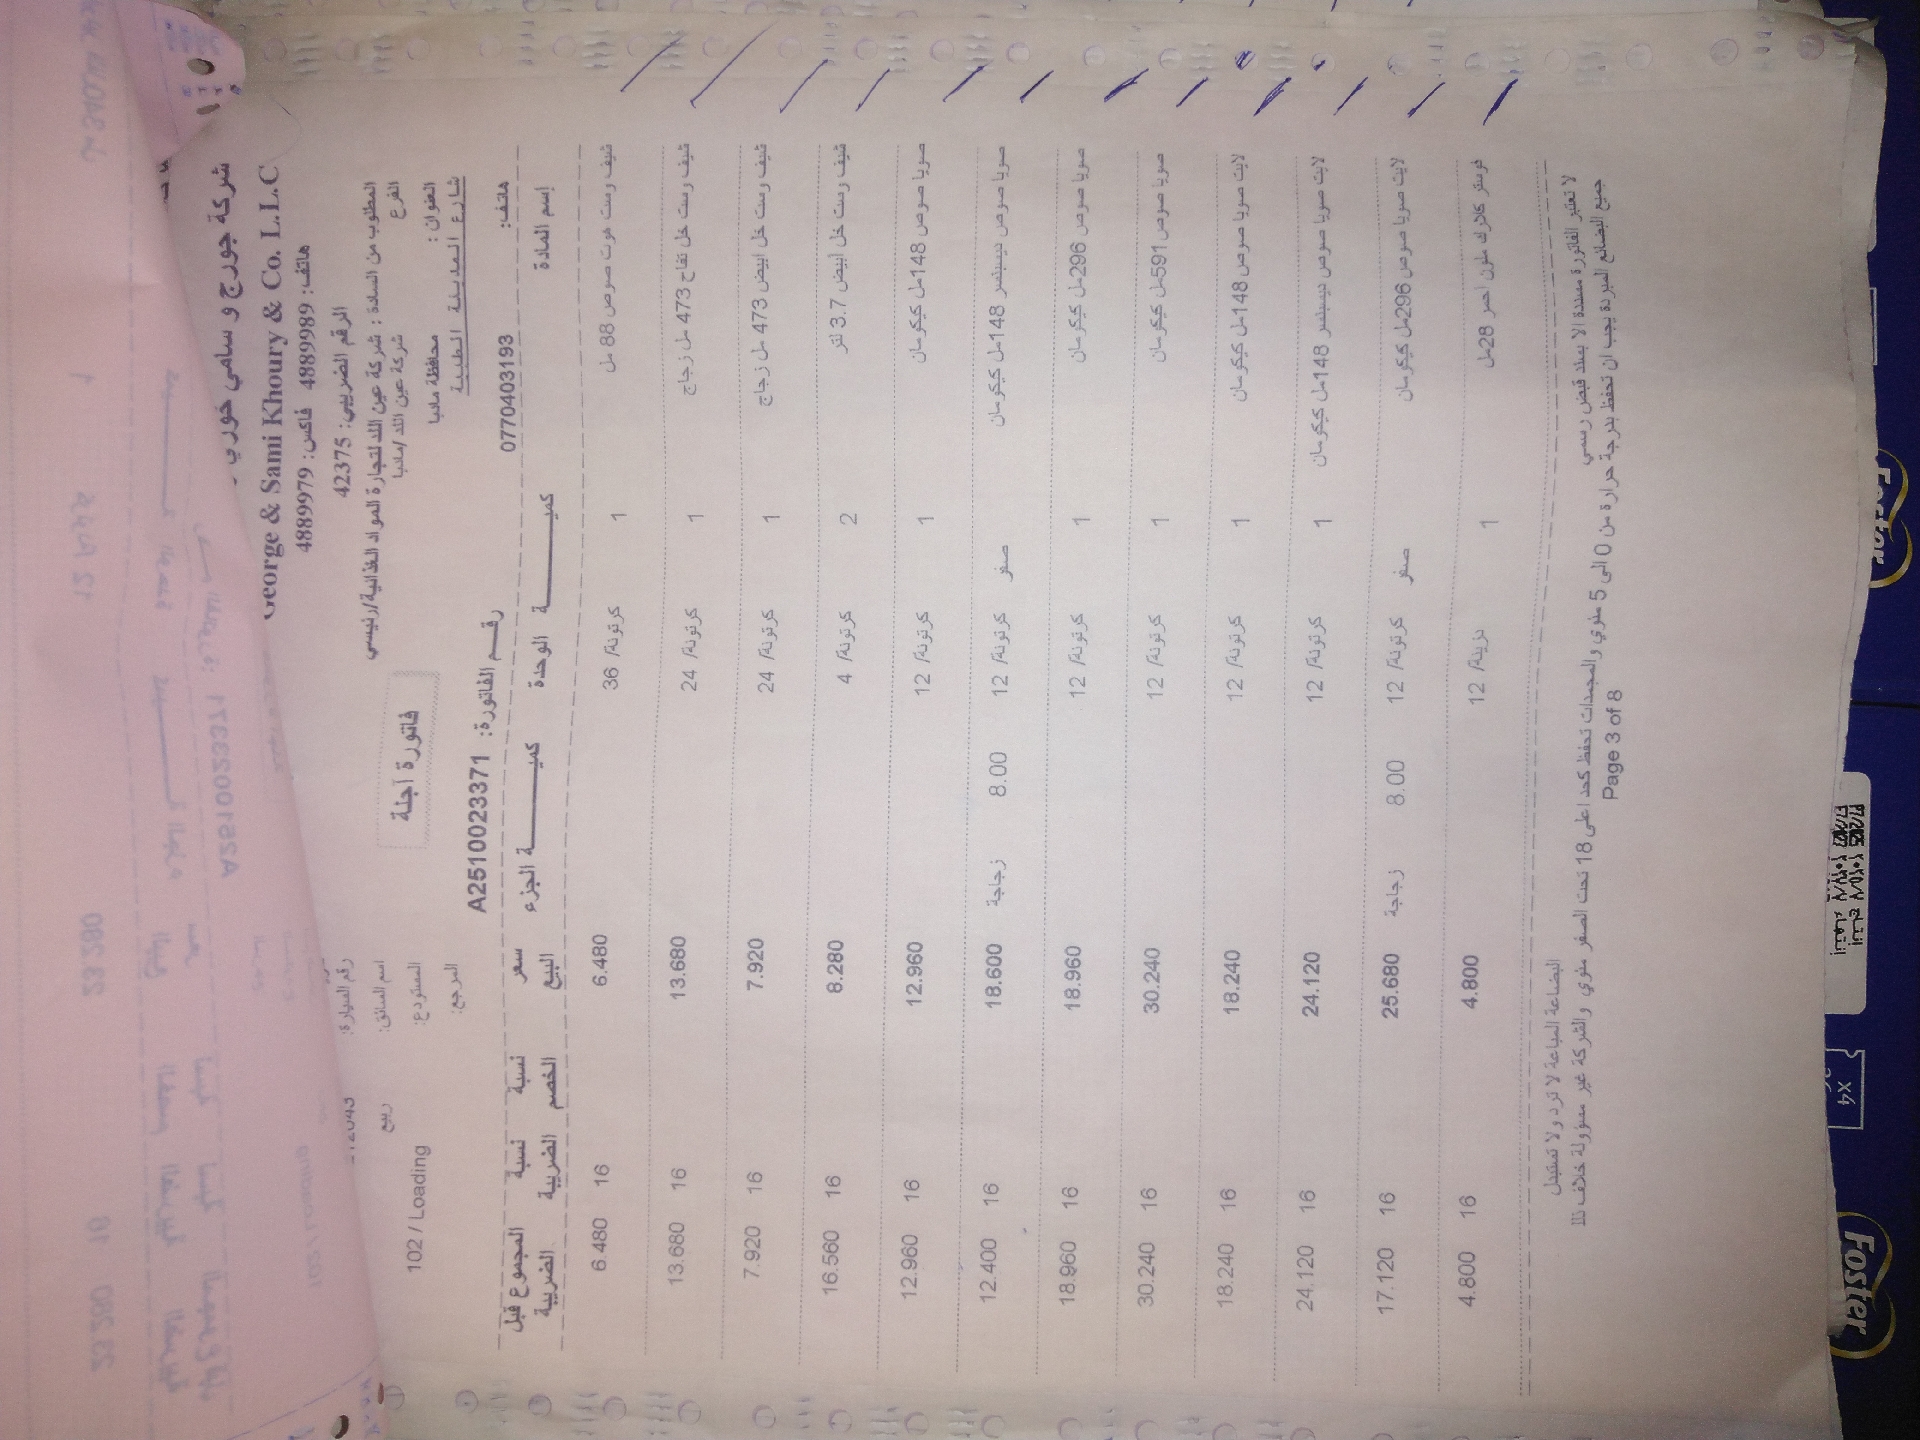 شركة جورج و سامي خوري
George & Sami Khoury & Co. L.L.C
هاتف: 4889989 فاكس: 4889979
الرقم الضريبي: 42375
المطلوب من السادة : شركة عين اللد لتجارة المواد الغذائية/رئيسي
الفرع شركة عين اللد /مادبا
العنوان : محافظة مادبا
شارع المدينة الطبية
هاتف: 0770403193
فاتورة آجلة
رقم السيارة:
اسم السائق: ربيع
المستودع: 102 / Loading
المرجع:
رقم الفاتورة: A2510023371
إسم المادة كميـة الوحدة كميـة الجزء سعر البيع نسبة الخصم نسبة الضريبة المجموع قبل الضريبة
شيف رست هوت صوص 88 مل 1 كرتونة/ 36 6.480 16 6.480
شيف رست خل تفاح 473 مل زجاج 1 كرتونة/ 24 13.680 16 13.680
شيف رست خل ابيض 473 مل زجاج 1 كرتونة/ 24 7.920 16 7.920
شيف رست خل ابيض 3.7 لتر 2 كرتونة/ 4 8.280 16 16.560
صويا صوص 148مل كيكومان 1 كرتونة/ 12 12.960 16 12.960
صويا صوص ديسبنسر 148مل كيكومان صفر كرتونة/ 12 8.00 زجاجة 18.600 16 12.400
صويا صوص 296مل كيكومان 1 كرتونة/ 12 18.960 16 18.960
صويا صوص 591مل كيكومان 1 كرتونة/ 12 30.240 16 30.240
لايت صويا صوص 148مل كيكومان 1 كرتونة/ 12 18.240 16 18.240
لايت صويا صوص ديسبنسر 148مل كيكومان 1 كرتونة/ 12 24.120 16 24.120
لايت صويا صوص 296مل كيكومان صفر كرتونة/ 12 8.00 زجاجة 25.680 16 17.120
فوستر كلارك ملون احمر 28مل 1 درزينة/ 12 4.800 16 4.800
لا تعتبر الفاتورة مسددة الا بسند قبض رسمي البضاعة المباعة لا ترد ولا تستبدل
جميع البضائع المبردة يجب ان تحفظ بدرجة حرارة من 0 الى 5 مئوي والمجمدات تحفظ كحد اعلى 18 تحت الصفر مئوي والشركة غير مسؤولة خلاف ذلك
Page 3 of 8
Foster
X4
Foster